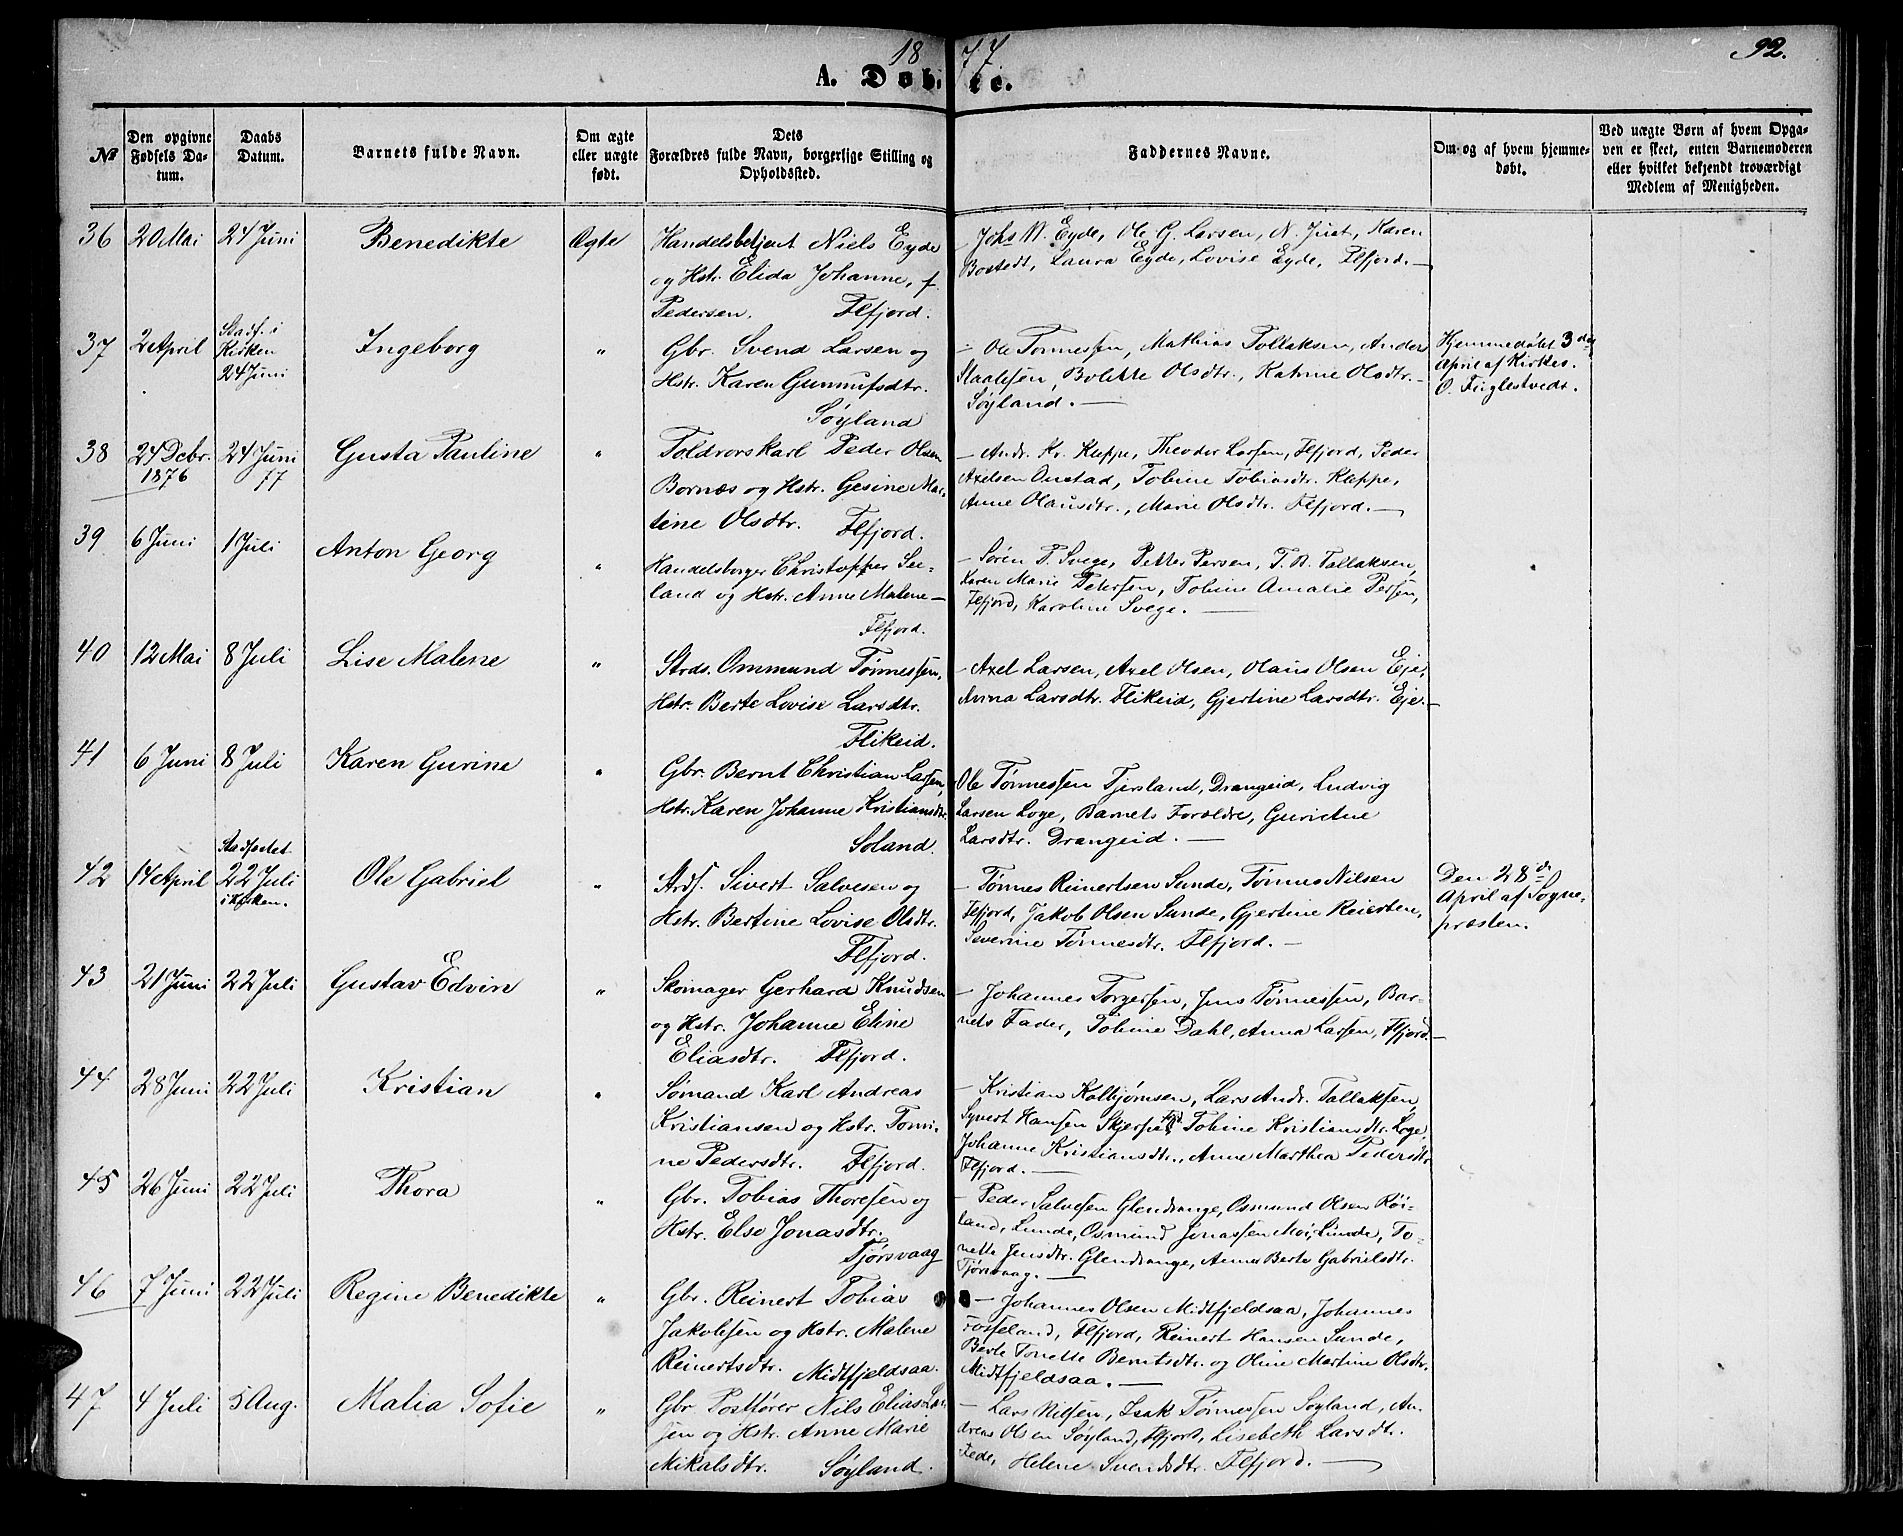 1877.
92.
A. Døbte.
№
Den opgivne Fødsels Datum.
Daabs Datum.
Barnets fulde Navn.
Om ægte eller uægte født.
Dets Forældres fulde Navn, borgerlige Stilling og Opholdssted.
Faddernes Navne.
Om og af hvem hjemmedøbt.
Ved uægte Børn af hvem Opgaven er skeet, enten Barnemoderen eller hvilket bekjendt troværdigt Medlem af Menigheden.
36 20 Mai 24 Juni Benedikte Ægte
Handelsbetjent Niels Eyde
og Hstr. Elida Johanne, f.
Pedersen. Flfjord.
– Johs M. Eyde, Ole G. Larsen, N. Just, Karen
Bostedt, Laura Eyde, Lovise Eyde, Flfjord. –
37 2 April Stadf. i Kirken 24 Juni Ingeborg "
Gbr. Svend Larsen og
Hstr. Karen Gunnufsdtr.
Søyland
– Ole Tønnessen, Mathias Tollaksen, Anders
Staalesen, Bolette Olsdtr., Kathrine Olsdtr. –
Søyland. –
Hjemmedøbt 3 de
April af Kirkes.
O. Fuglestvedt.
38 24 Debr. 1876 24 Juni 77 Gusta Pauline "
Toldrorskarl Peder Olsen
Bornæs og Hstr. Gesine Mar-
tine Olsdtr. Flfjord.
– Andr. Kr. Kuppe, Theodor Larsen, Flfjord, Peder
Axelsen Onstad, Tobine Tobiasdtr. Kuppe,
Anne Olausdtr., Marie Olsdtr. Flfjord. –
39 6 Juni 1 Juli Anton Georg "
Handelsborger Christopher See-
land og Hstr. Anne Malene –
Flfjord.
– Søren P. Svege, Petter Persen, T. A. Tallaksen,
Karen Marie Petersen, Tobine Amalie Persen,
Flfjord, Karoline Svege. –
40 12 Mai 8 Juli Lise Malene "
Strds. Ommund Tønnessen,
Hstr. Berte Lovise Larsdtr.
Flikeid.
– Axel Larsen, Axel Olsen, Olaus Olsen Eje,
Anna Larsdtr. Flikeid, Gjertine Larsdtr. Eje. –
41 6 Juni 8 Juli Karen Gurine "
Gbr. Bernt Christian Larsen,
Hstr. Karen Johanne Kristiansdtr.
Soland.
Ole Tønnessen Tjersland, Drangeid, Ludvig
Larsen Loge, Barnets Forældre, Gurine
Larsdtr. Drangeid. –
42 14 April Stadfæstet 22 Juli i Kirken. Ole Gabriel "
Strdf. Sivert Salvesen og
Hstr. Bertine Lovise Olsdtr.
Flfjord.
– Tønnes Reinertsen Sunde, Tønnes Nilsen
Flfjord, Jakob Olsen Sunde, Gjertine Reiersen,
Severine Tønnesdtr. Flfjord. –
Den 28 de
April af Sogne-
præsten.
43 21 Juni 22 Juli Gustav Edvin "
Skomager Gerhard Knudsen
og Hstr. Johanne Eline
Eliasdtr. Flfjord.
– Johannes Torgersen, Jens Tønnessen, Bar-
nets Fader, Tobine Dahl, Anna Larsen, Flfjord. –
44 28 Juni 22 Juli Kristian "
Sømand Karl Andreas
Kristiansen og Hstr. Tomi-
ne Pedersdtr. Flfjord.
– Kristian Kolbjørnsen, Lars Andr. Tallaksen,
Syvert Hansen Skjerpe, Tobine Kristiansdtr. Loge,
Johanne Kristiansdtr., Anne Marthea Pedersdtr.
Flfjord. –
45 26 Juni 22 Juli Thora "
Gbr. Tobias Thoresen og
Hstr. Else Jonasdtr.
Tjørsvaag
– Peder Salvesen Glendrange, Osmund Olsen Røi-
land, Lunde, Osmund Jonassen Moi, Lunde, To-
nette Jensdtr. Glendrange, Anne Berte Gabrielsdtr.
Tjørsvaag. –
46 7 Juni 22 Juli Regine Benedikte "
Gbr. Reinert Tobias
Jakobsen og Hstr. Malene
Reinertsdtr. Midtfjeldsaa.
– Johannes Olsen Midtfjeldsaa, Johannes
Fosseland, Flfjord, Reinert Hansen Sunde,
Berte Tonette Berntsdtr. og Oline Martine Olsdtr.
Midtfjeldsaa. –
47 4 Juli 5 Aug. Malia Sofie "
Gbr. Postfører Nils Elias Lar-
sen og Hstr. Anne Marie
Mikalsdtr. Søyland.
– Lars Nilsen, Isak Tønnessen Søyland, An-
dreas Olsen Søyland, Flfjord, Lisebeth Larsdtr.
Fede, Helene Svendsdtr. Flfjord. –